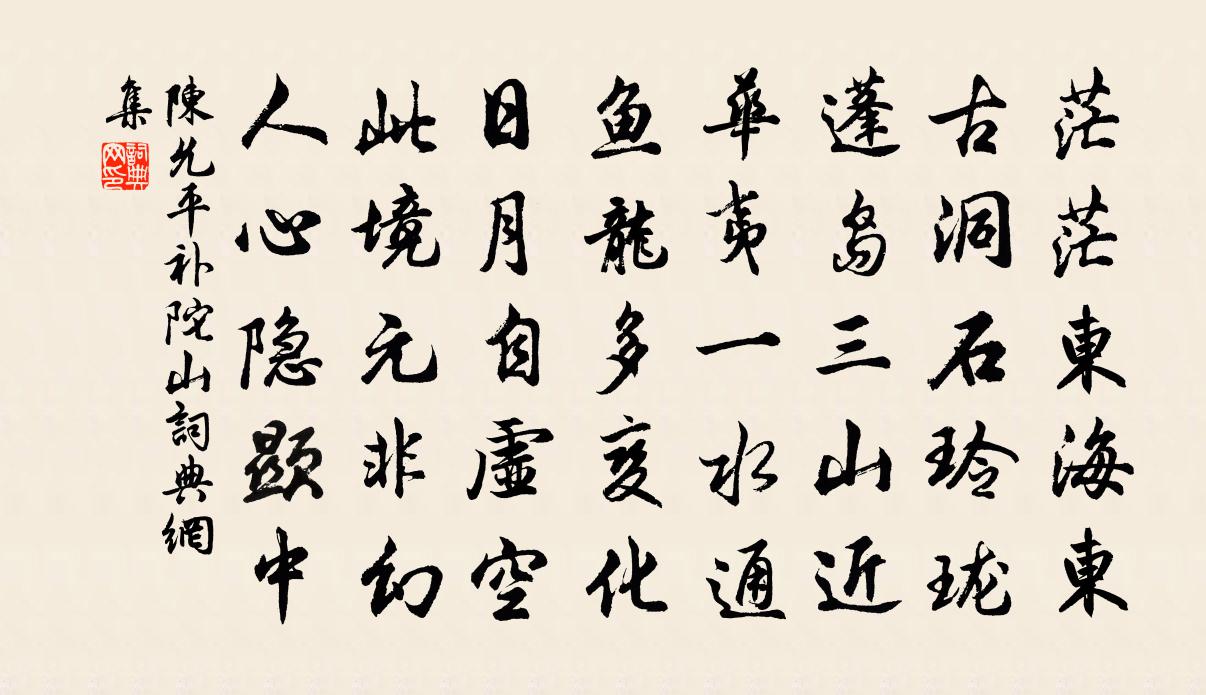 茫茫東海東
古洞石玲珑
蓬岛三山近
華夷一水通
鱼龍多变化
日月自虚空
此境元非幻
人心隐顕中
陳允平补陀山詞典網
集
詞典網印